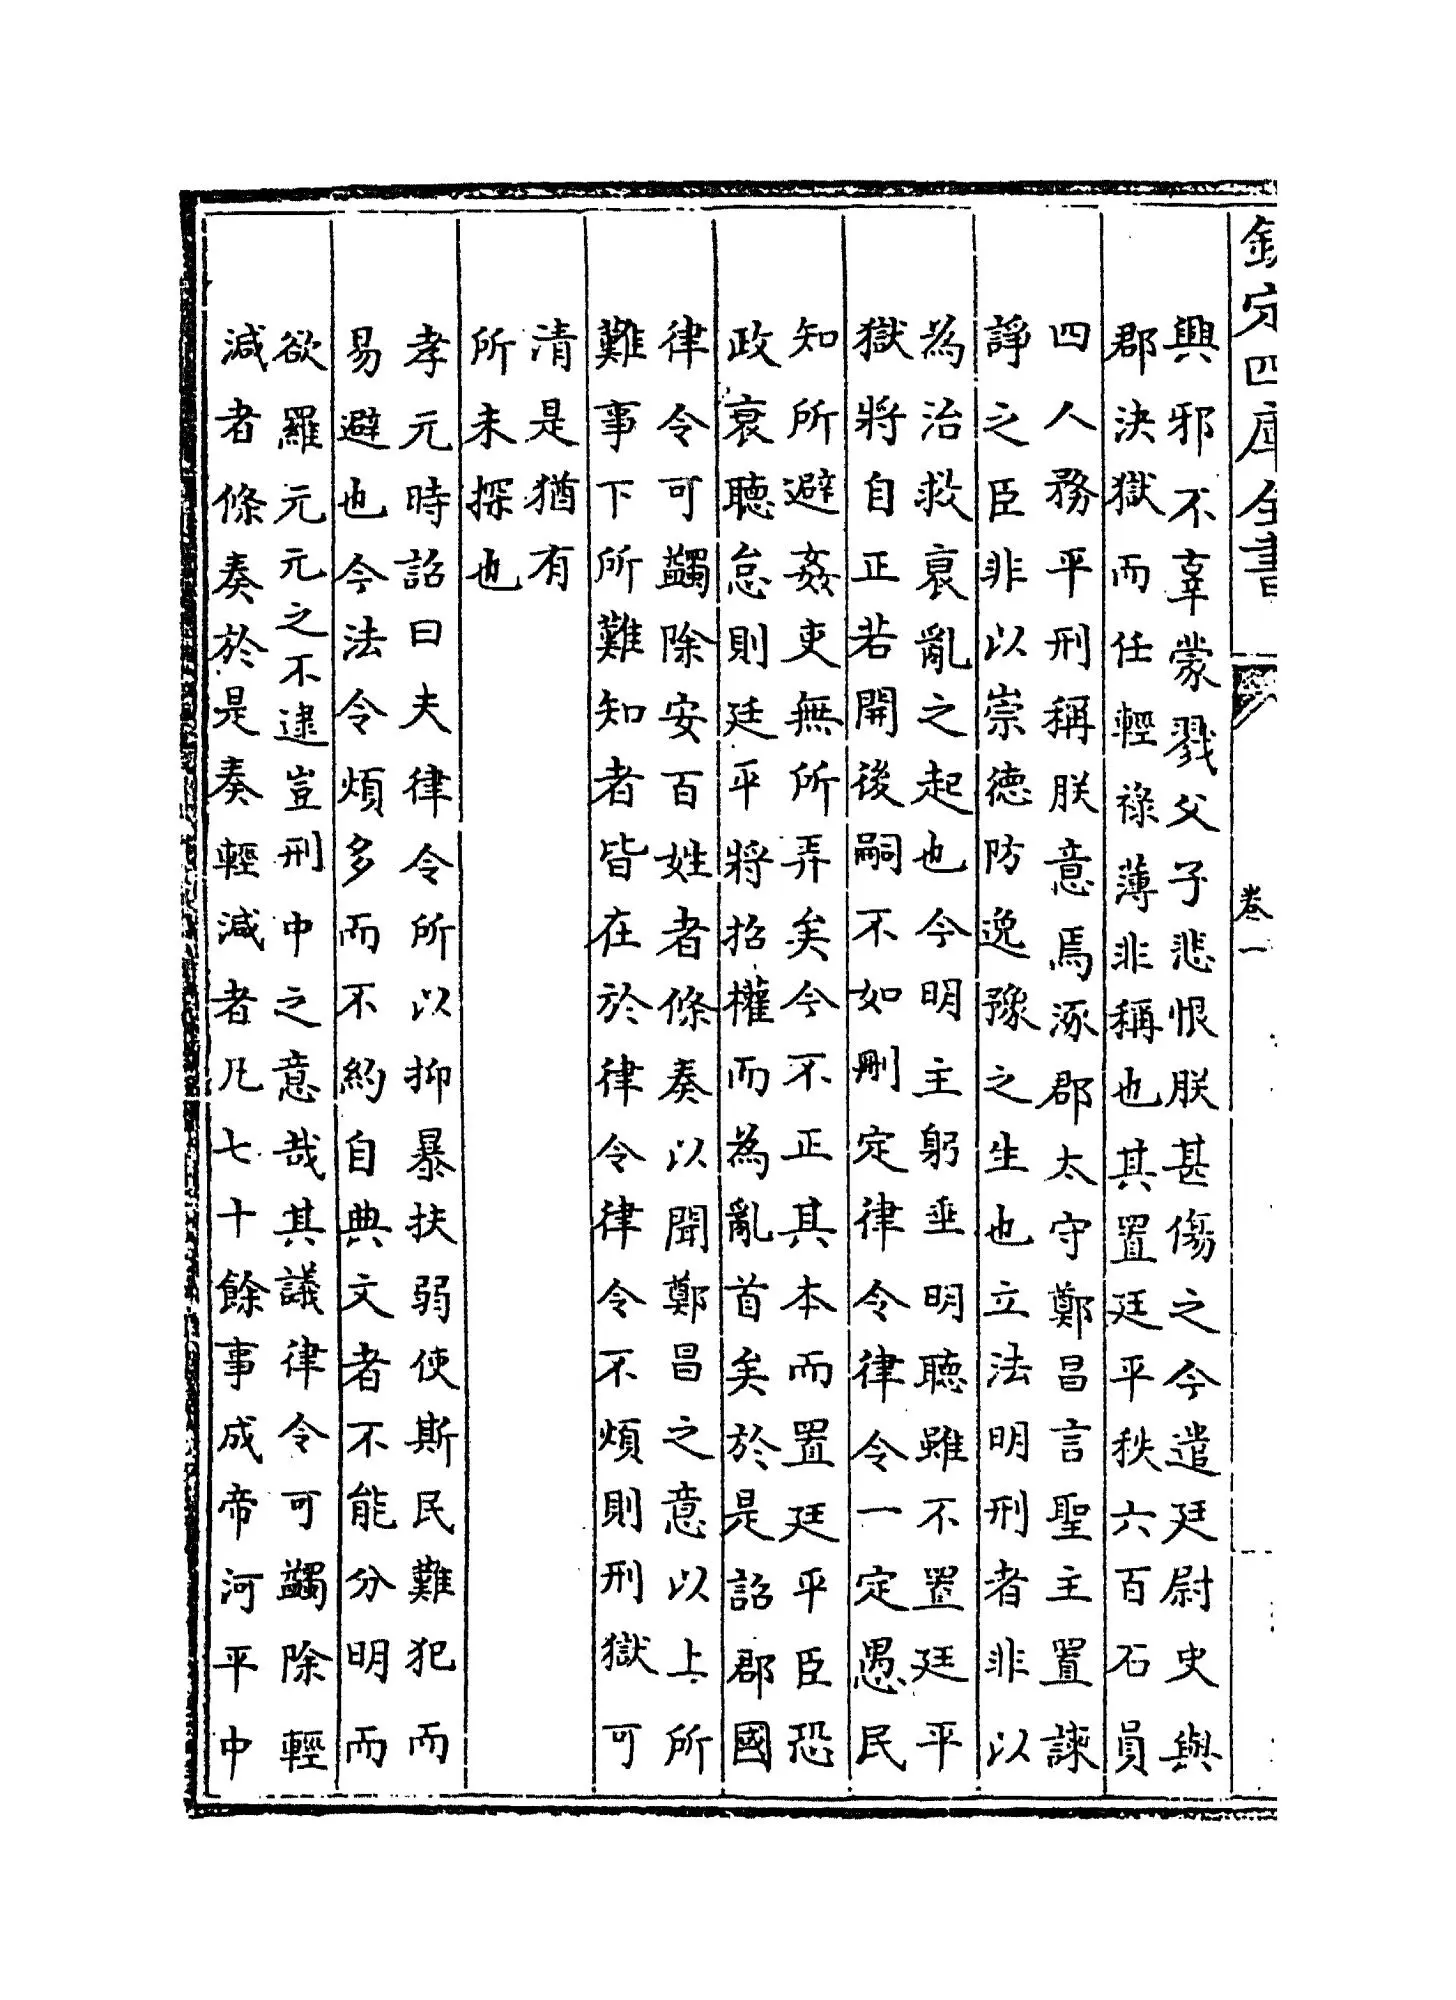 欽定四庫全書
卷一
興邪不辜蒙戮父子悲恨朕甚傷之今遣廷尉史與
郡決獄而任輕祿薄非稱也其置廷平秩六百石員
四人務平刑稱朕意焉涿郡太守鄭昌言聖主置諫
諍之臣非以崇德防逸豫之生也立法明刑者非以
為治救衰亂之起也今明主躬垂明聽雖不置廷平
獄將自正若開後嗣不如刪定律令律令一定愚民
知所避姦吏無所弄矣今不正其本而置廷平臣恐
政衰聽怠則廷平將招權而為亂首矣於是詔郡國
律令可蠲除安百姓者條奏以聞鄭昌之意以上所
難事下所難知者皆在於律令律令不煩則刑獄可
清是猶有
所未探也
孝元時詔曰夫律令所以抑暴扶弱使斯民難犯而
易避也今法令煩多而不約自典文者不能分明而
欲羅元元之不逮豈刑中之意哉其議律令可蠲除輕
減者條奏於是奏輕減者凡七十餘事成帝河平中